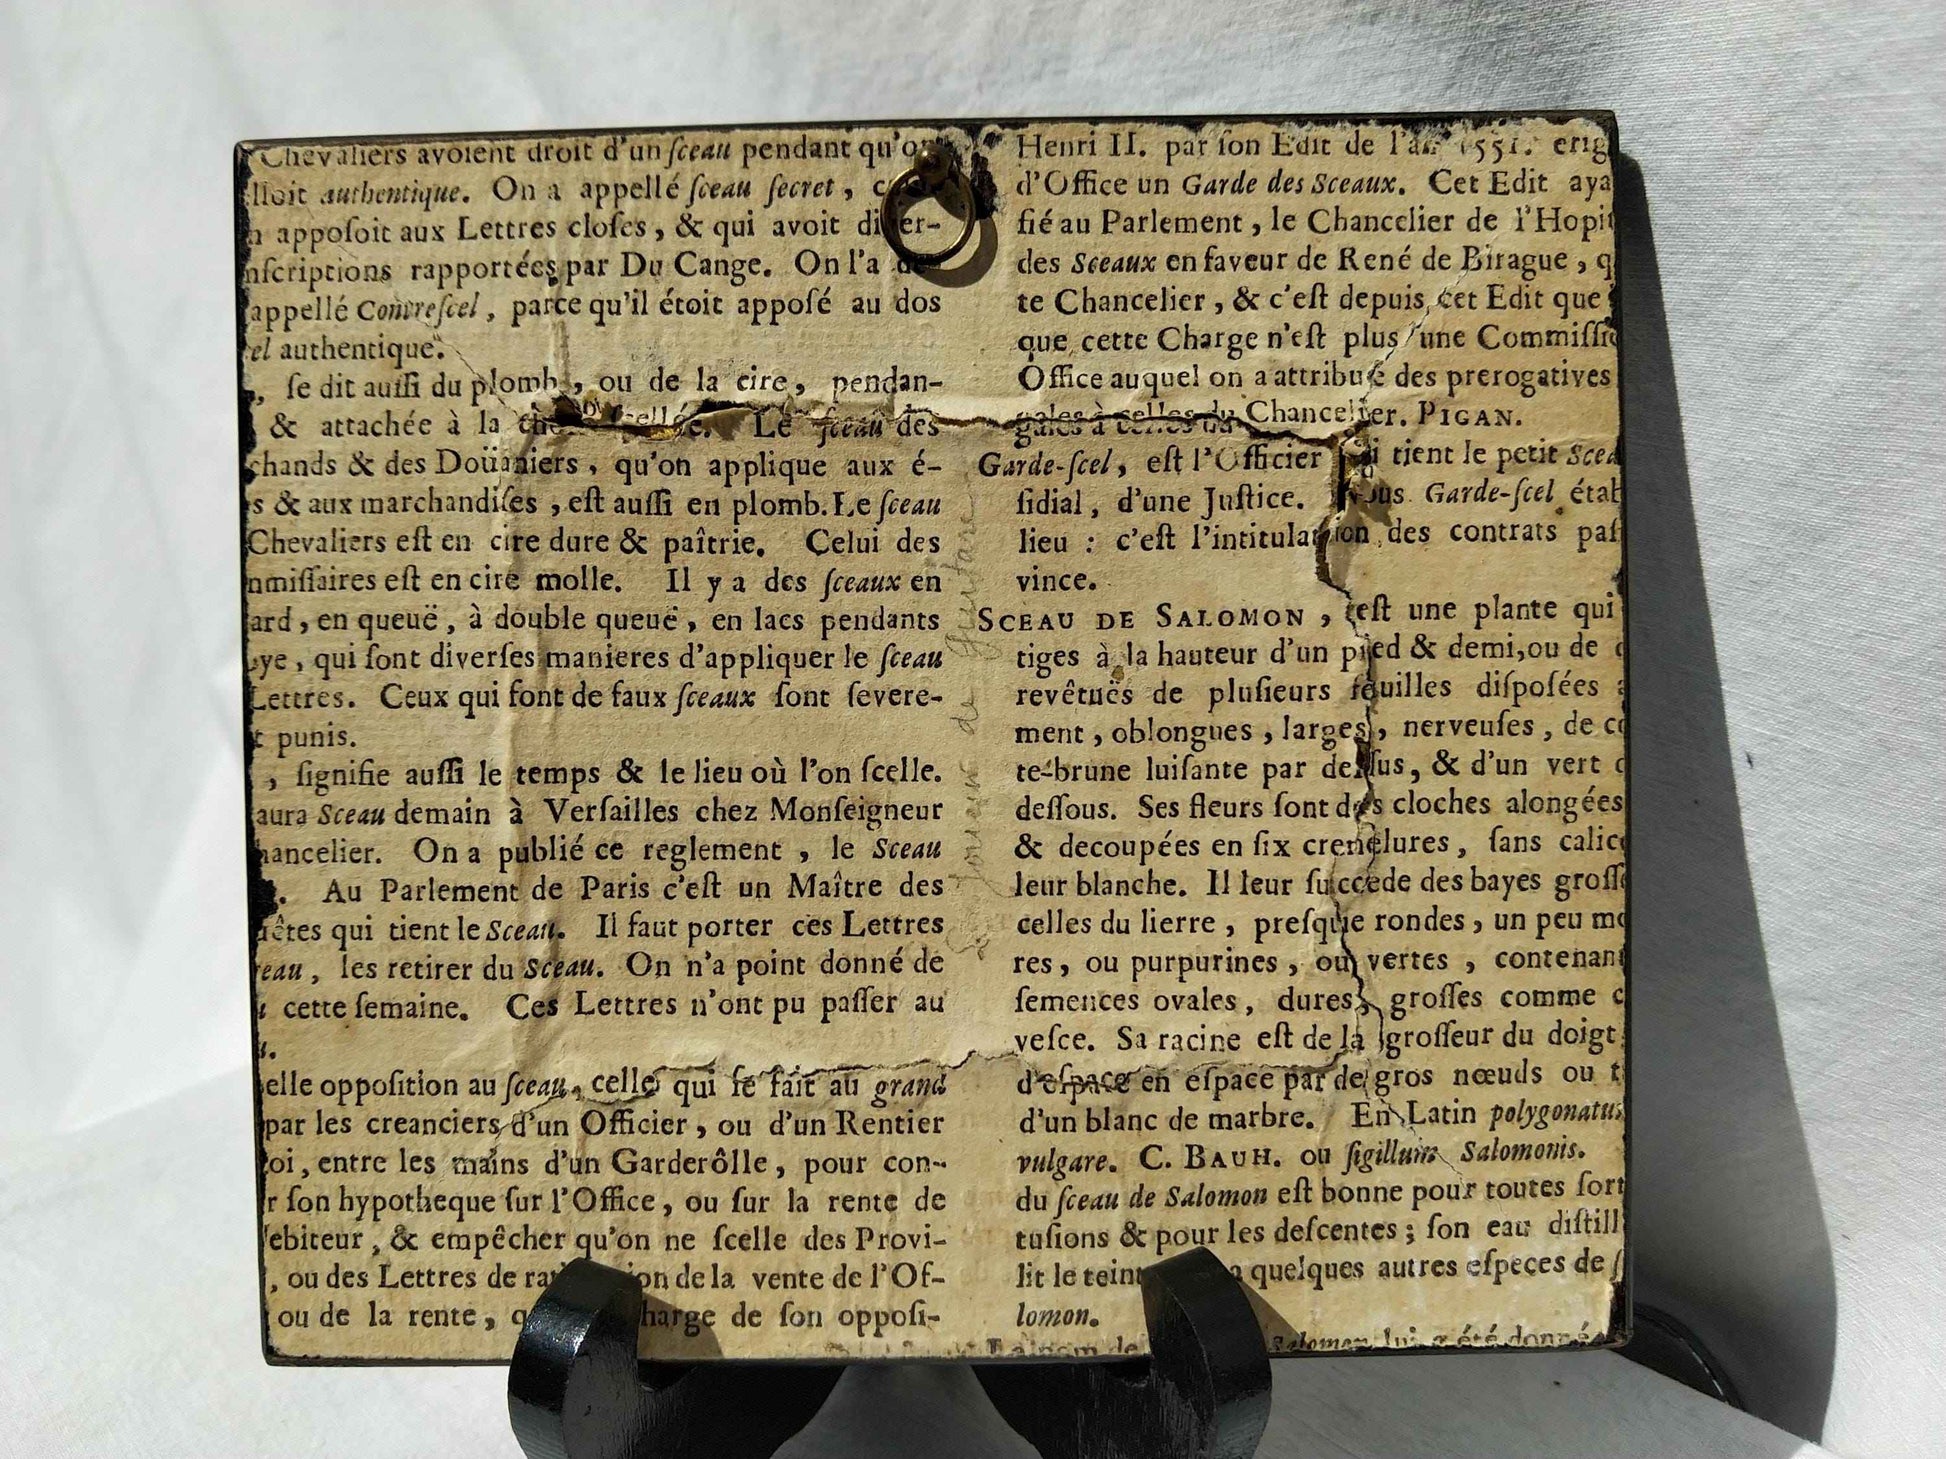 Chevaliers avoient droit d'un ſceau pendant
authentique. On a appellé ſceau ſecret,
appoſoit aux Lettres cloſes, & qui avoit
rapportées par Du Cange. On l'a
appellé Contreſcel, parce qu'il étoit appoſé au dos
authentique.
ſe dit auſſi du plomb, ou de la cire, pendan-
& attachée à la Le ſceau des
& des Doüaniers, qu'on applique aux é-
& aux marchandiſes, eſt auſſi en plomb. Le ſceau
Chevaliers eſt en cire dure & paîtrie. Celui des
eſt en cire molle. Il y a des ſceaux en
ard, en queuë, à double queuë, en lacs pendants
qui ſont diverſes manieres d'appliquer le ſceau
Lettres. Ceux qui font de faux ſceaux ſont ſevere-
punis.
, ſignifie auſſi le temps & le lieu où l'on ſcelle.
aura Sceau demain à Verſailles chez Monſeigneur
hancelier. On a publié ce reglement, le Sceau
. Au Parlement de Paris c'eſt un Maître des
êtes qui tient le Sceau. Il faut porter ces Lettres
eau, les retirer du Sceau. On n'a point donné de
cette ſemaine. Ces Lettres n'ont pu paſſer au
elle oppoſition au ſceau, celle qui ſe fait au grand
par les creanciers d'un Officier, ou d'un Rentier
oi, entre les mains d'un Garderôlle, pour con-
r ſon hypotheque ſur l'Office, ou ſur la rente de
ebiteur, & empêcher qu'on ne ſcelle des Provi-
, ou des Lettres de de la vente de l'Of-
ou de la rente, de ſon oppoſi-
Henri II. par ſon Edit de l'an 1551. erig
d'Office un Garde des Sceaux. Cet Edit aya
fié au Parlement, le Chancelier de l'Hopit
des Sceaux en faveur de René de Birague, q
te Chancelier, & c'eſt depuis cet Edit que
que cette Charge n'eſt plus une Commiſſio
Office auquel on a attribué des prerogatives
gales à celles du Chancelier. PIGAN.
Garde-ſcel, eſt l'Officier qui tient le petit Scea
ſidial, d'une Juſtice. Garde-ſcel étab
lieu : c'eſt l'intitulation des contrats paſ
vince.
SCEAU DE SALOMON, eſt une plante qui
tiges à la hauteur d'un pied & demi, ou de
revêtuës de pluſieurs feuilles diſpoſées a
ment, oblongues, larges, nerveuſes, de co
te-brune luiſante par deſſus, & d'un vert
deſſous. Ses fleurs ſont des cloches alongées
& decoupées en ſix crenelures, ſans calic
leur blanche. Il leur ſuccede des bayes groſſe
celles du lierre, preſque rondes, un peu mo
res, ou purpurines, ou vertes, contenan
ſemences ovales, dures, groſſes comme c
veſce. Sa racine eſt de la groſſeur du doigt
d'eſpace en eſpace par de gros nœuds ou t
d'un blanc de marbre. En Latin polygonatu
vulgare. C. BAUH. ou ſigillum Salomonis.
du ſceau de Salomon eſt bonne pour toutes ſort
tuſions & pour les deſcentes ; ſon eau diſtill
lit le teint quelques autres eſpeces de ſ
lomon.
lui a été donné